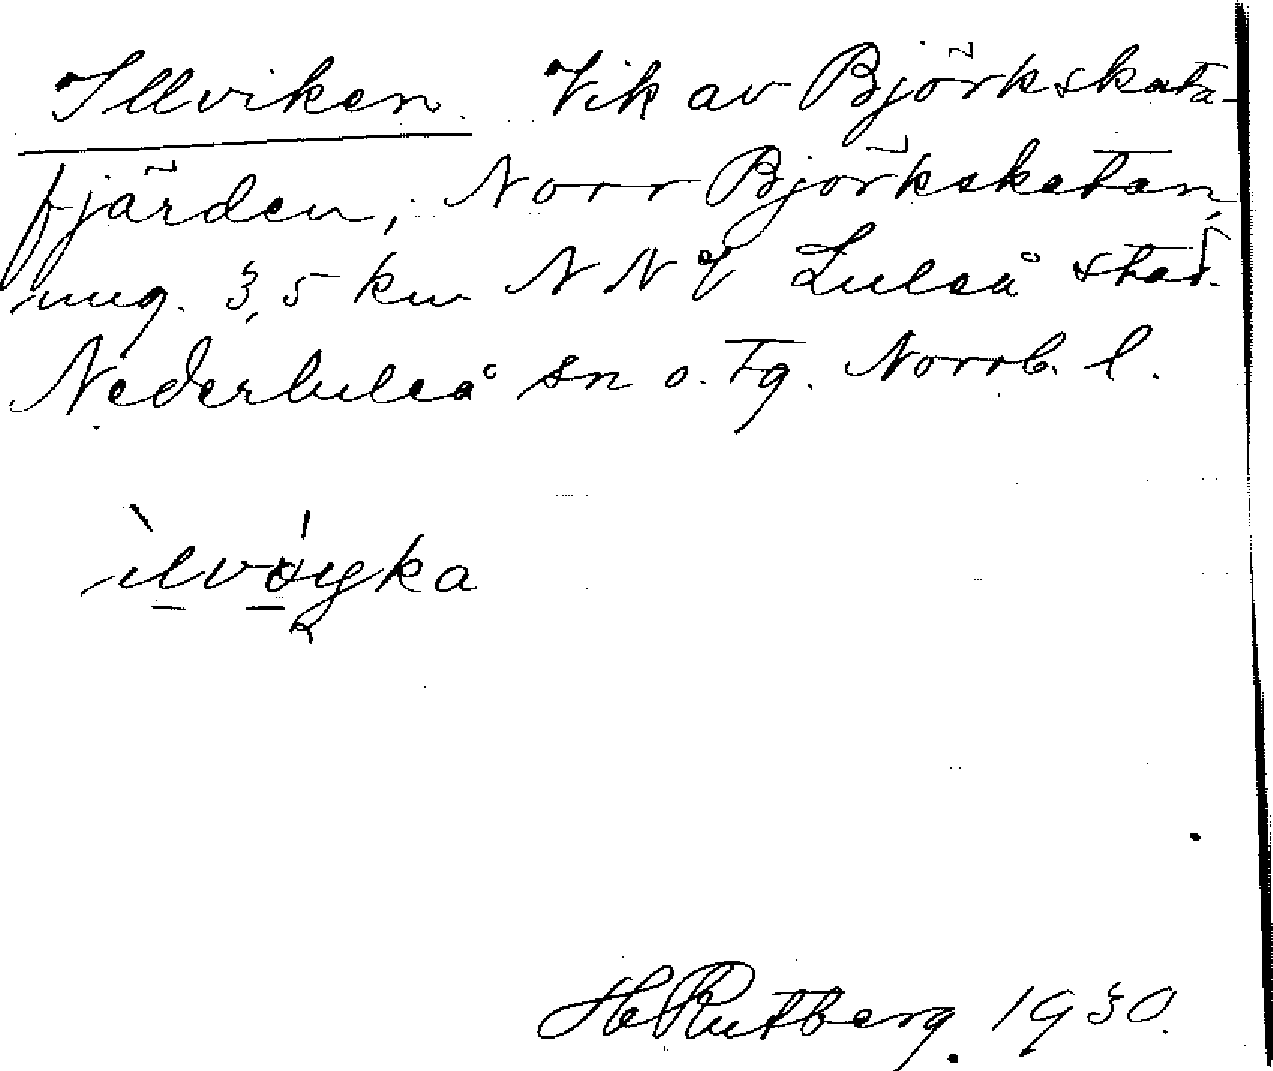 Illviken Vik av Björkskata-
fjärden, Norr Björkskatan,
ung. 3,5 km NNV Luleå stad.
Nederluleå sn o. tg. Norrb. l.
ìlvǿyka
H Rutberg. 1930.